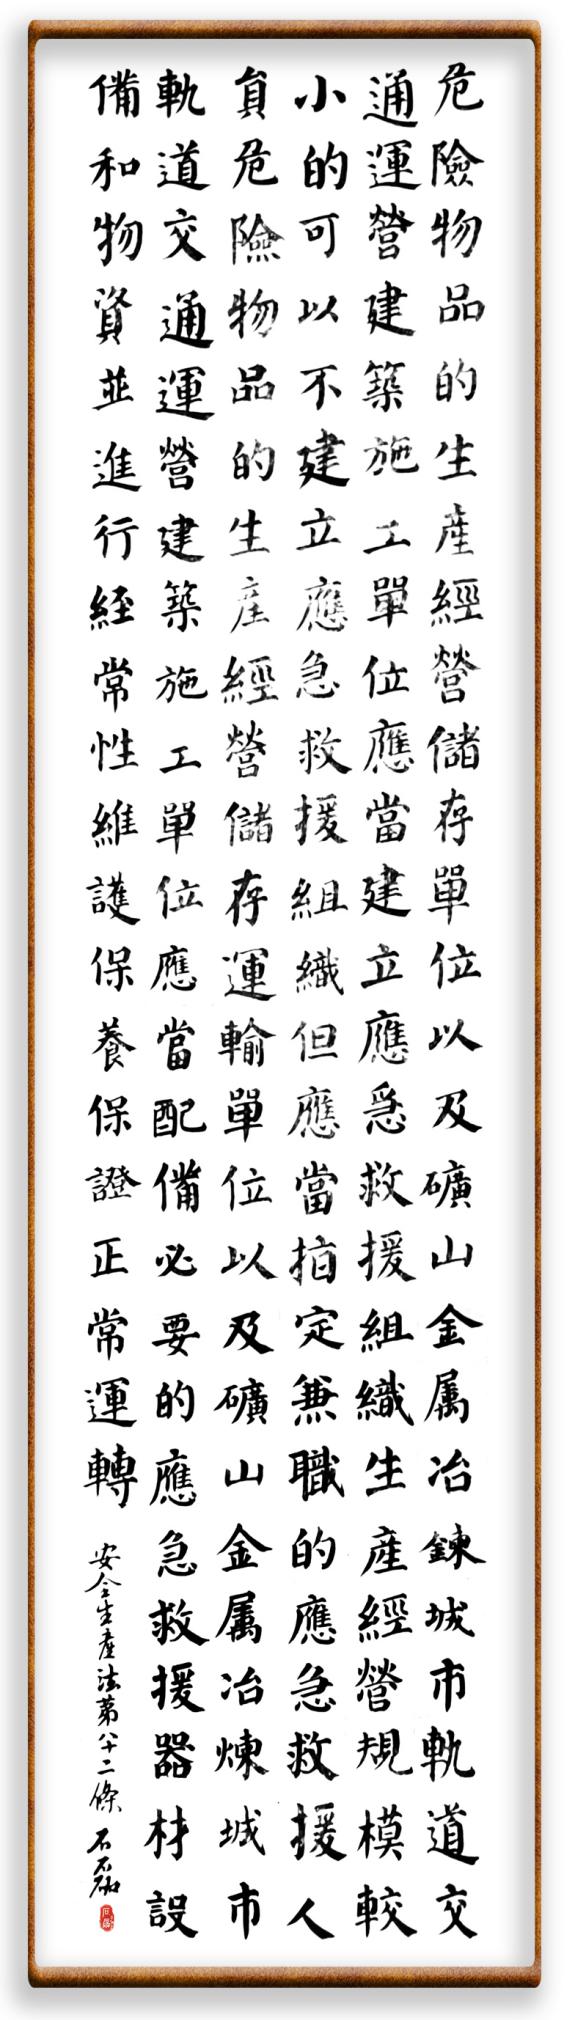 危險物品的生產經營儲存單位以及礦山金属冶鍊城市軌道交
通運營建築施工單位應當建立應急救援組織生產經營規模較
小的可以不建立應急救援組織但應當指定兼職的應急救援人
員危險物品的生產經營儲存運輸單位以及礦山金属冶煉城市
軌道交通運營建築施工單位應當配備必要的應急救援器材設
備和物資並進行經常性維護保養保證正常運轉
安全生產法第八十二條 石磊